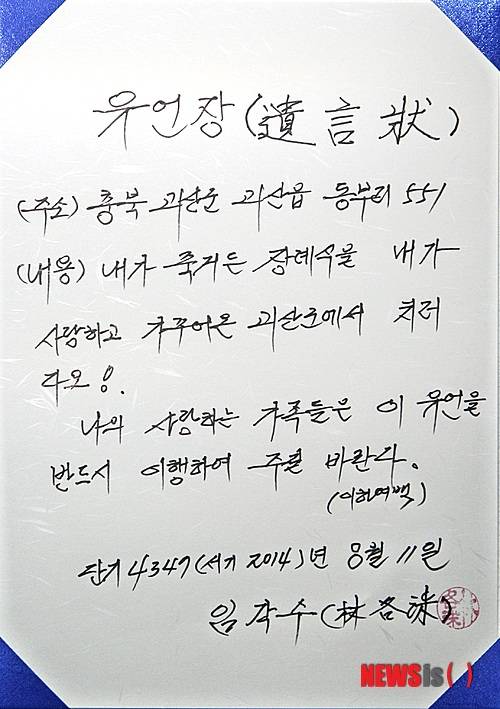 유언장(遺言狀)
(주소) 충북 괴산군 괴산읍 동부리 551
(내용) 내가 죽거든 장례식을 내가
사랑하고 가꾸어온 괴산군에서 치러
다오!.
나의 사랑하는 가족들은 이 유언을
반드시 이행하여 주길 바란다.
(이하여백)
단기 4347(서기 2014)년 8월 11일
임각수(林各洙)
NEWSis( )